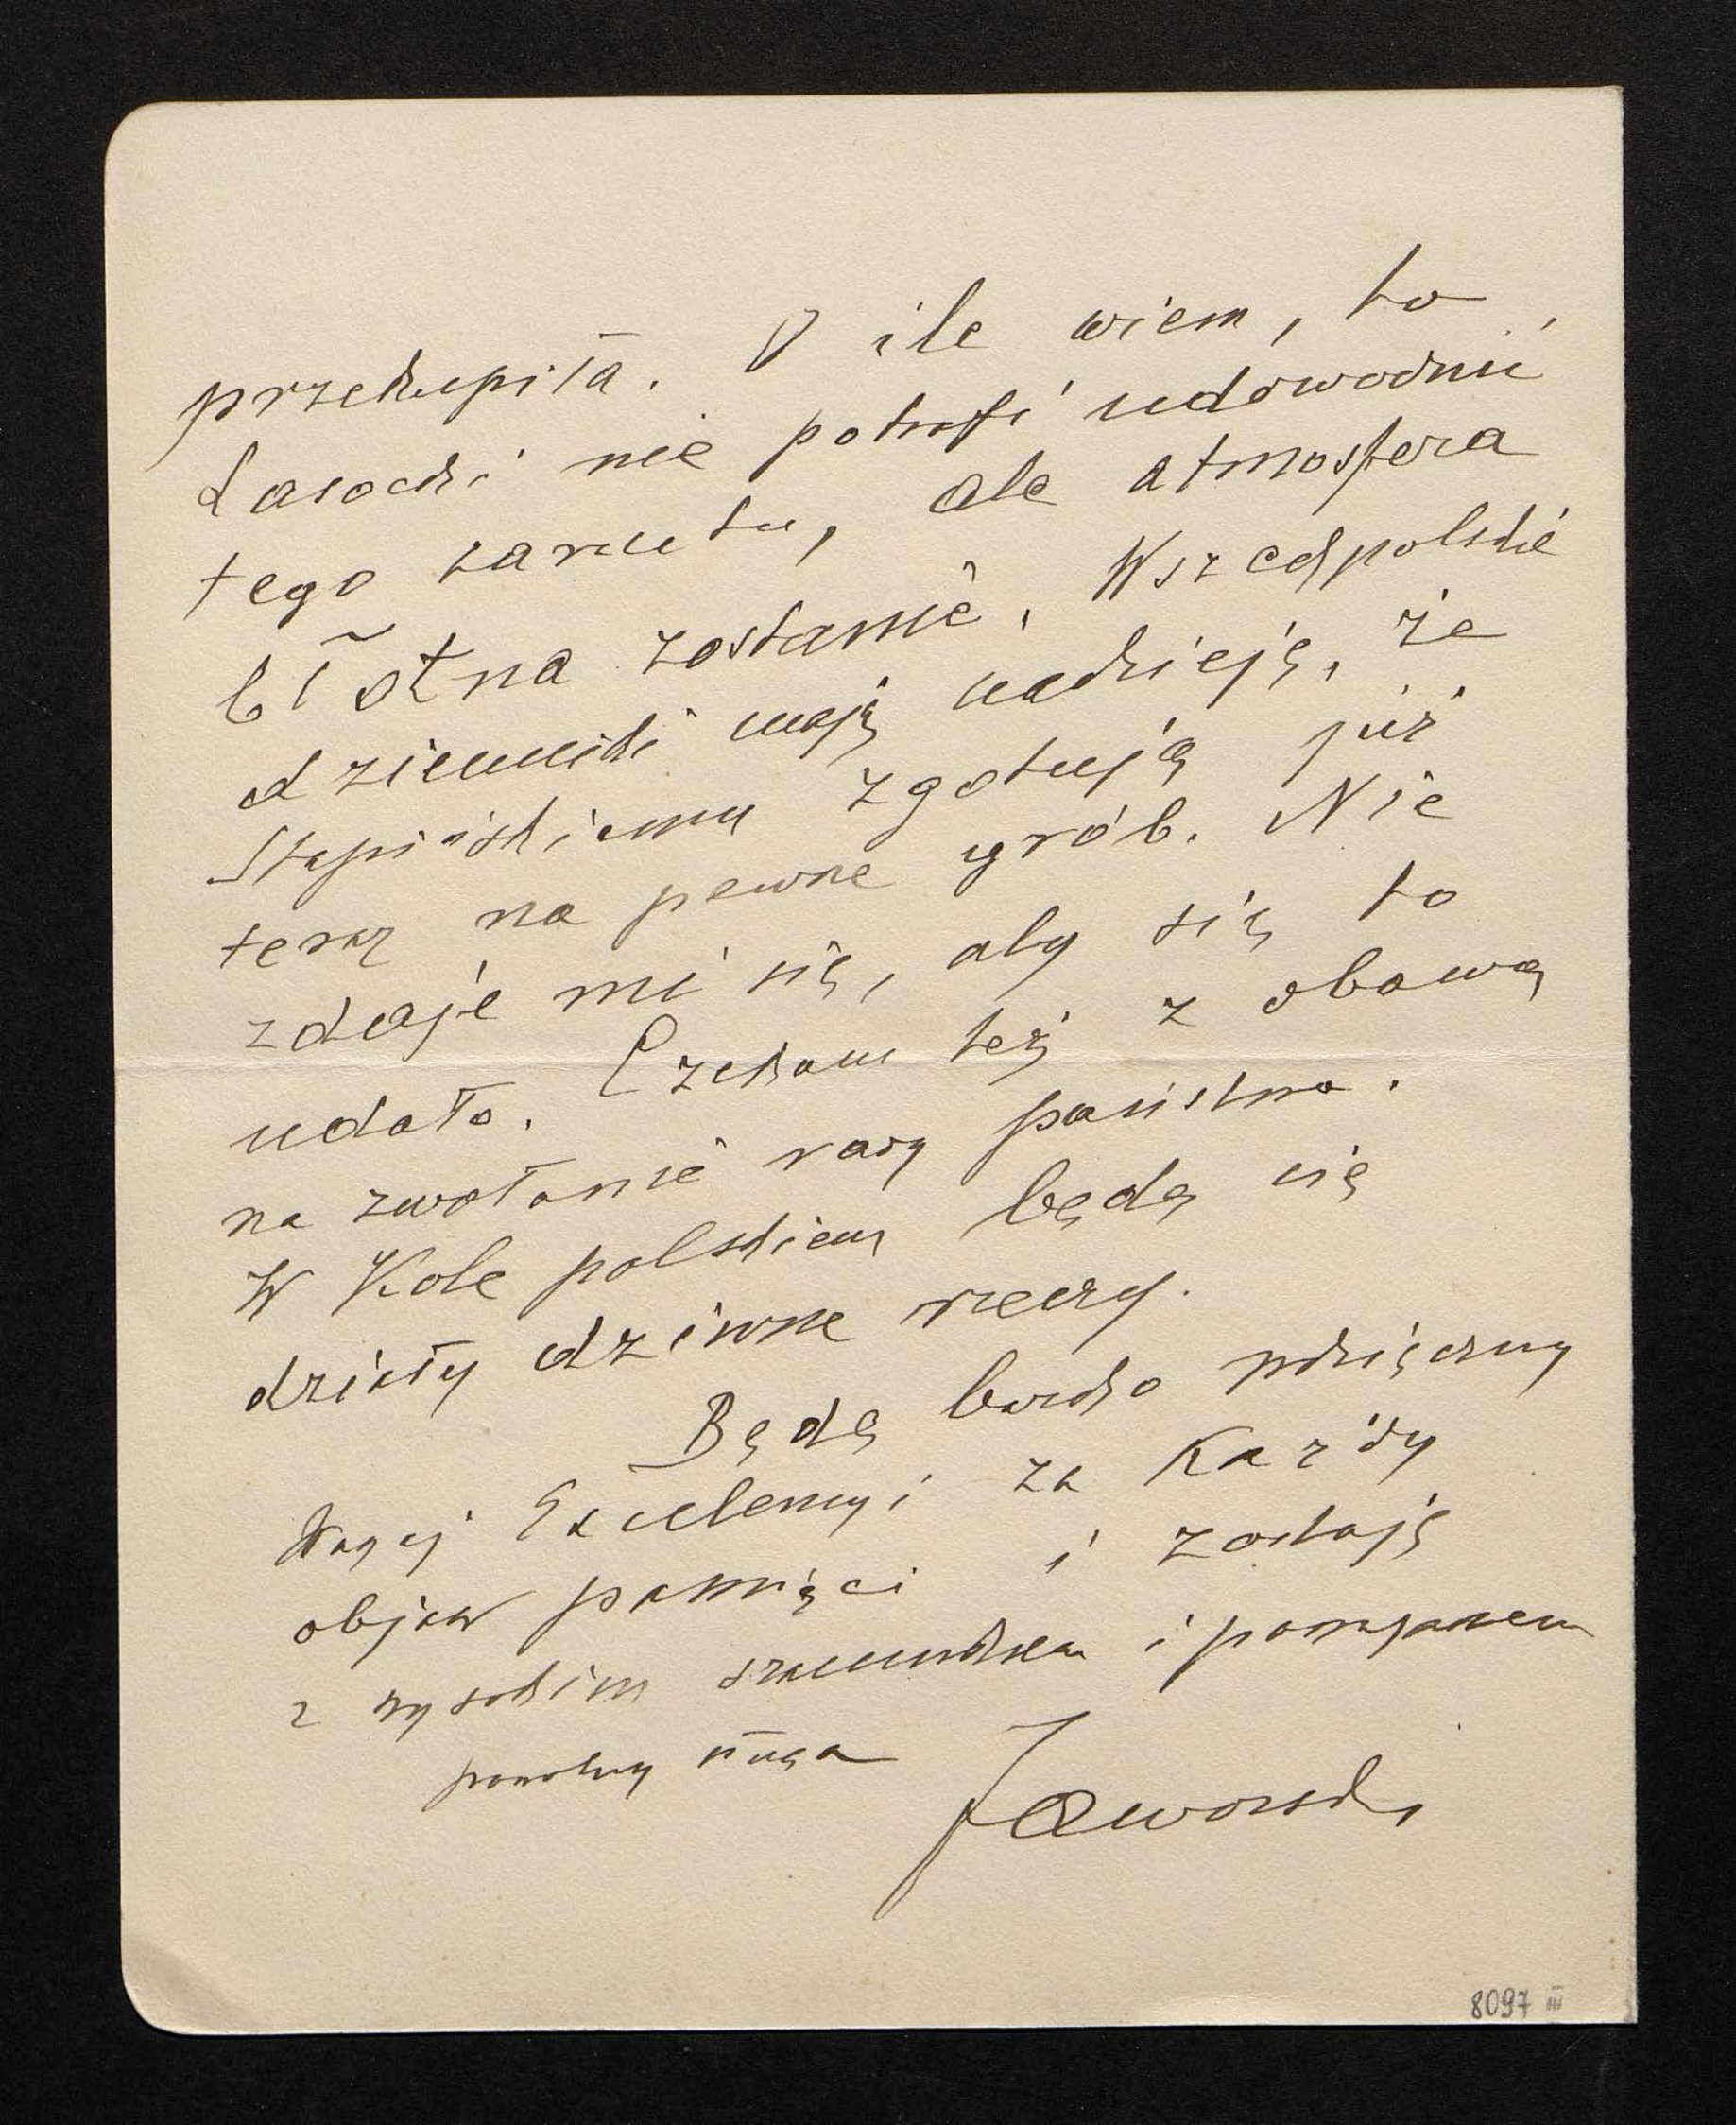 przekupiła. O ile wiem, to
Lasocki nie potrafi udowodnić
tego zarzutu, ale atmosfera
błotna zostanie. Wszechpolskie
dzienniki mają nadzieję, że
Stapińskiemu zgotują już
teraz na pewne grób. Nie
zdaje mi się, aby się to
udało. Czekam też z obawą
na zwołanie rady państwa.
W Kole polskiem będą się
działy dziwne rzeczy.
Będę bardzo wdzięczny
Waszej Excelencyi za każdy
objaw pamięci i zostaję
z wysokim szacunkiem i poważaniem
powolny sługa
Jaworski
8097 III